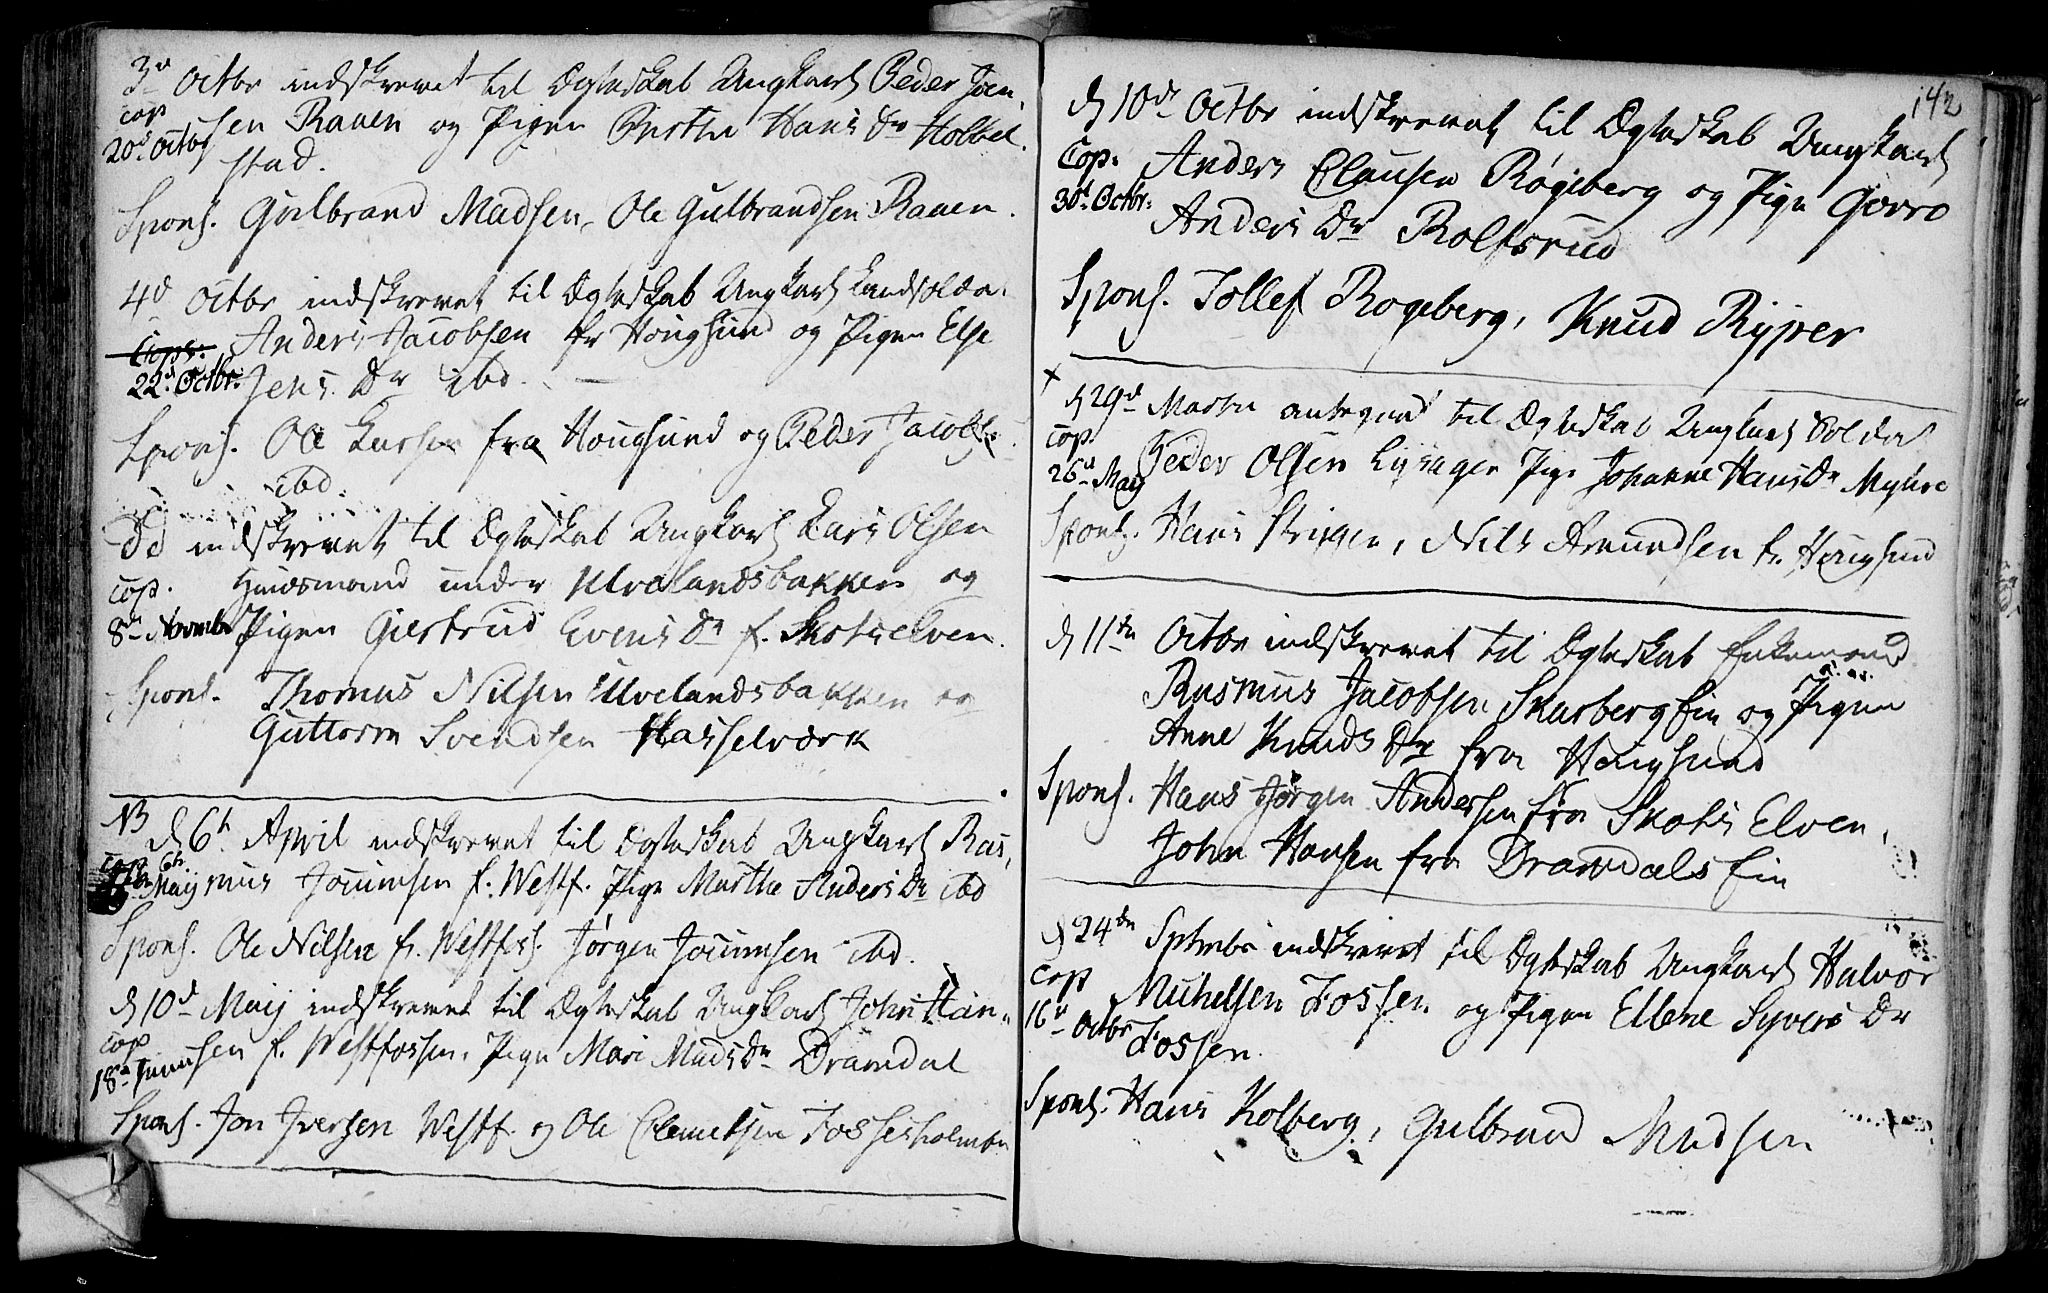 3d Octbr indskrevet til Ægteskab Ungkarl Peder Joen-
cop
20d Octbr sen Raaen og Pigen Birthe Hans Dr Holbel-
stad.
Spons. Gulbrand Madsen, Ole Gulbrandsen Raaen.
4d Octbr indskrevet til Ægteskab Ungkarl Landsolda.
Cops: Anders Jacobsen fr Hougsund og Pigen Else
22d Octbr: Jens Dr ibd.
Spons. Ole Larsen fra Hougsund og Peder Jacobs.
ibd.
Dd indskrevet til Ægteskab Ungkarl Lars Olsen
cop. Huusmand under Ulvelandsbakken og
8d Novembr Pigen Giertrud Evens Dr f. Skotselven.
Spons. Thomas Nilsen Ulvelandsbakken og
Guttorm Svendsen Hasselværk
NB
d 6t April indskrevet til Ægteskab Ungkarl Ras-
cop 6t
Maij mus Jouumsen f. Westf. Pige Marthe Anders Dr ibd
Spons. Ole Nilsen fr. Westfos. Jørgen Jouumsen ibd.
d 10d Maij indskrevet til Ægteskab Ungkarl John Han-
cop
18d Juni sen f. Westfossen. Pige Mari Mads Dr Dramdal
Spons. Jon Iversen Westf. og Ole Clemetsen Fossesholm
142
d 10d Octbr indskrevet til Ægteskab Ungkarl
Cop: Anders Clausen Røgeberg og Pige Gorro
30d Octbr: Anders Dr Rolfsrud
Spons. Tollef Rogeberg, Knud Ryper
x
d 29d Martii antegnet til Ægteskab Ungkarl Soldat
cop.
26d Maij Peder Olsen Lysager Pige Johanne Hans Dr Myhre
Spons. Hans, Nils Amundsen fr. Hougsund
d 11te Octbr indskrevet til Ægteskab Enkemand
Rasmus Jacobsen Skarberg Eie og Pigen
Anne Knuds Dr fra Hougsund
Spons. Hans Jørgen Andersen fra Skots Elven,
John Hansen fra Dramdals Eie
d 24de Septmbr indskrevet til Ægteskab Ungkarl Halvor
cop Michelsen Fossen og Pigen Ellene Syvers Dr
16d Octbr Fossen.
Spons. Hans Kolberg, Gulbrand Madsen